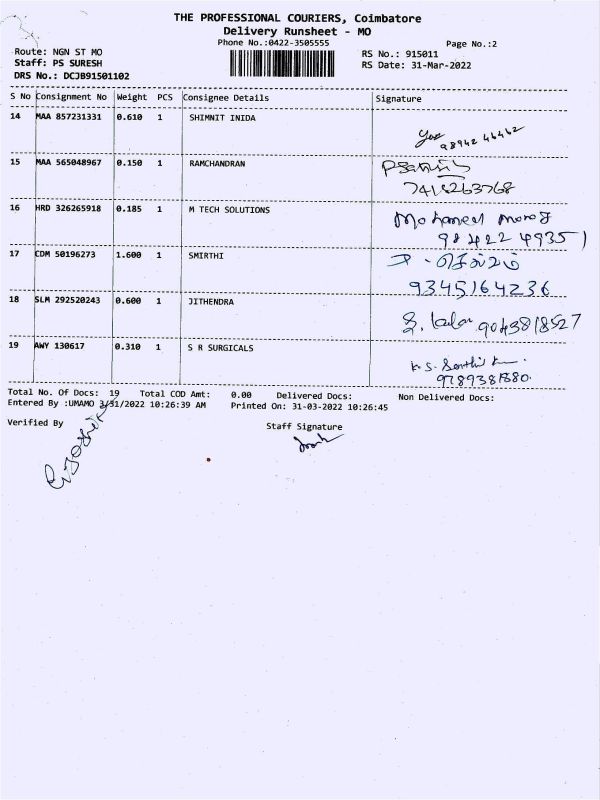 THE PROFESSIONAL COURIERS, Coimbatore
Delivery Runsheet - MO
Phone No.:0422-3505555
Page No.:2
Route: NGN ST MO
RS No.: 915011
Staff: PS SURESH
RS Date: 31-Mar-2022
DRS No.: DCJB91501102
S No Consignment No Weight PCS Consignee Details Signature
14 MAA 857231331 0.610 1 SHIMNIT INIDA
98942 46462
15 MAA 565048967 0.150 1 RAMCHANDRAN
7418263768
16 HRD 326265918 0.185 1 M TECH SOLUTIONS
98422 49351
17 CDM 50196273 1.600 1 SMIRTHI
9345164236
18 SLM 292520243 0.600 1 JITHENDRA
9043818527
19 AWY 130617 0.310 1 S R SURGICALS
9789381880
Total No. Of Docs: 19 Total COD Amt: 0.00 Delivered Docs: Non Delivered Docs:
Entered By :UMAMO 3/31/2022 10:26:39 AM Printed On: 31-03-2022 10:26:45
Verified By Staff Signature